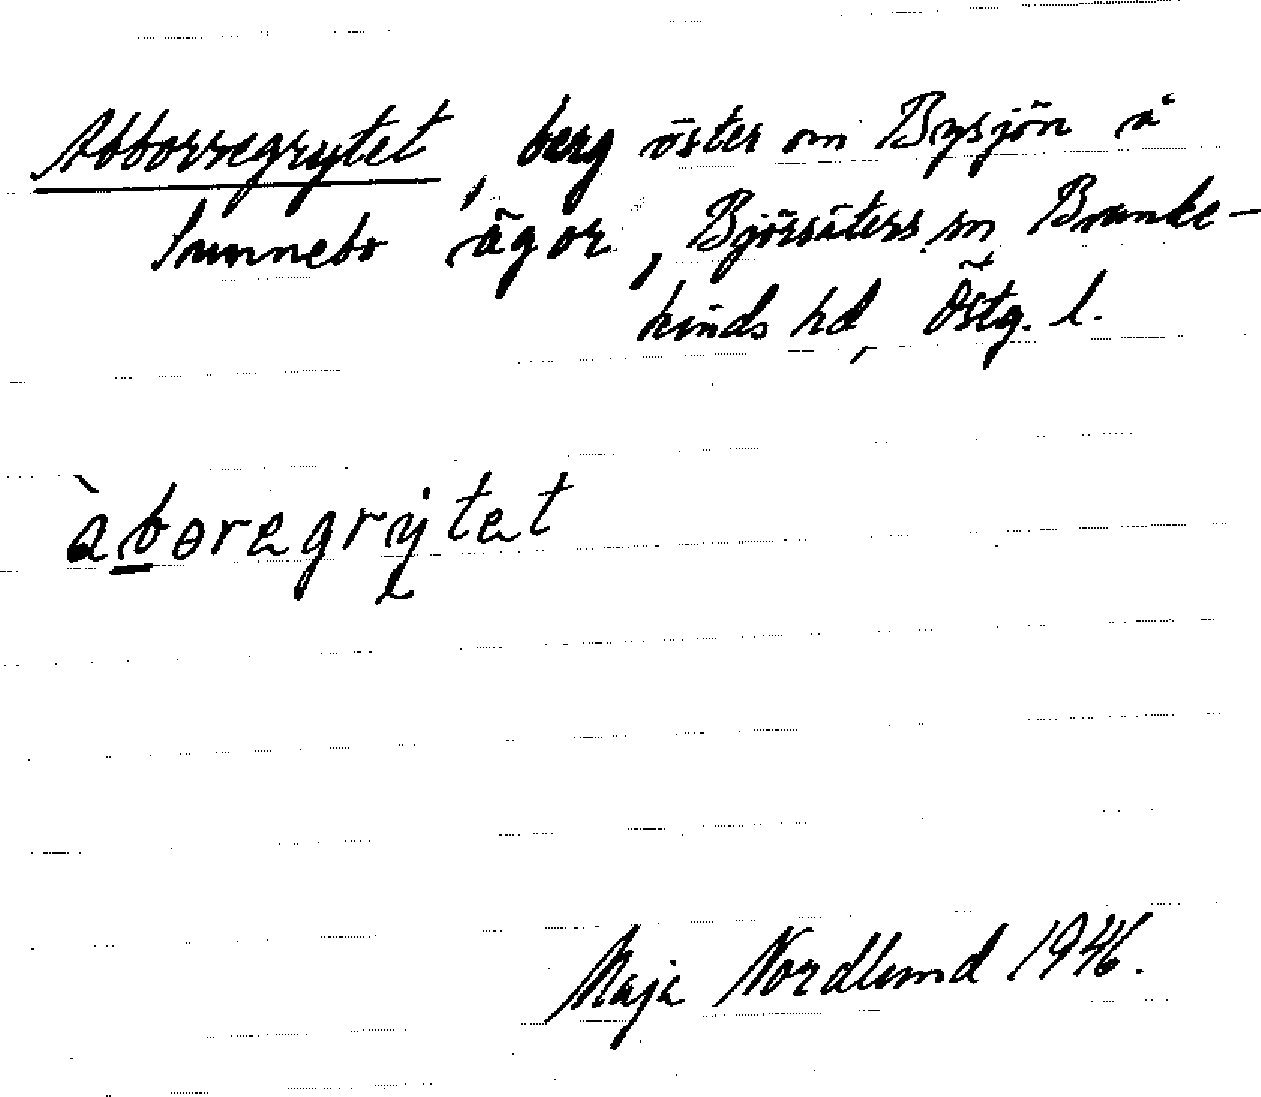 Abborregrytet, berg öster om Bysjön å
Sunnebo ägor, Björsäters sn Banke-
kinds hd, Östg. l.
àboregrytet
Maja Nordlund 1946.